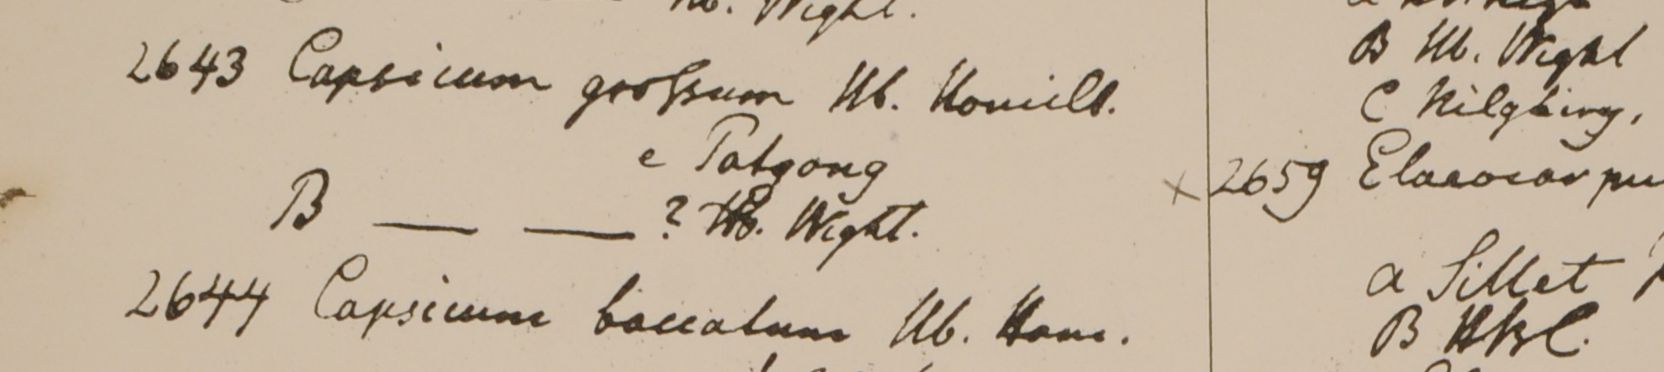 Hb. Wight.
2643 Capsicum grossum Hb. Hamilt.
e Patgong
B — — ? Hb. Wight.
2644 Capsicum baccatum Hb. Ham.
B Hb. Wight
C Nilghiry,
x 2659 Elaeocarpu
a Sillet
B HBC.